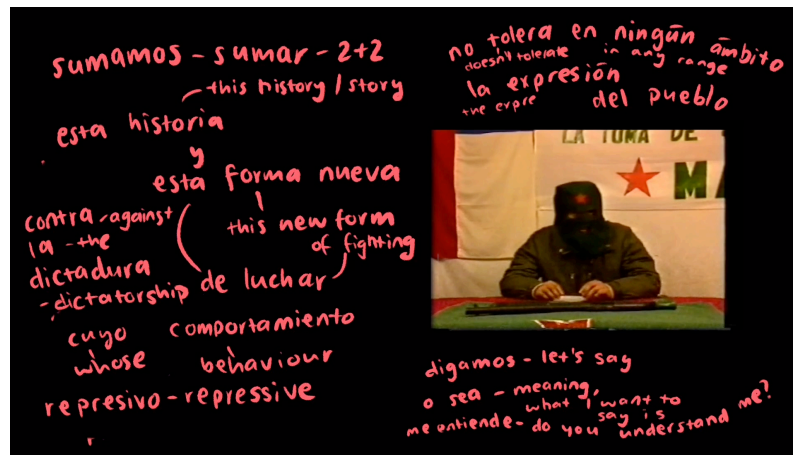 sumamos - sumar - 2+2
this history / story
esta historia
y
esta forma nueva
this new form
of fighting
de luchar
contra - against
la - the
dictadura
- dictatorship
cuyo comportamiento
whose behaviour
represivo - repressive
r
no tolera en ningún ámbito
doesn't tolerate in any range
la expresión
the expre
del pueblo
LA TOMA DE
MA
digamos - let's say
o sea - meaning,
what I want to
say is
me entiende - do you understand me?